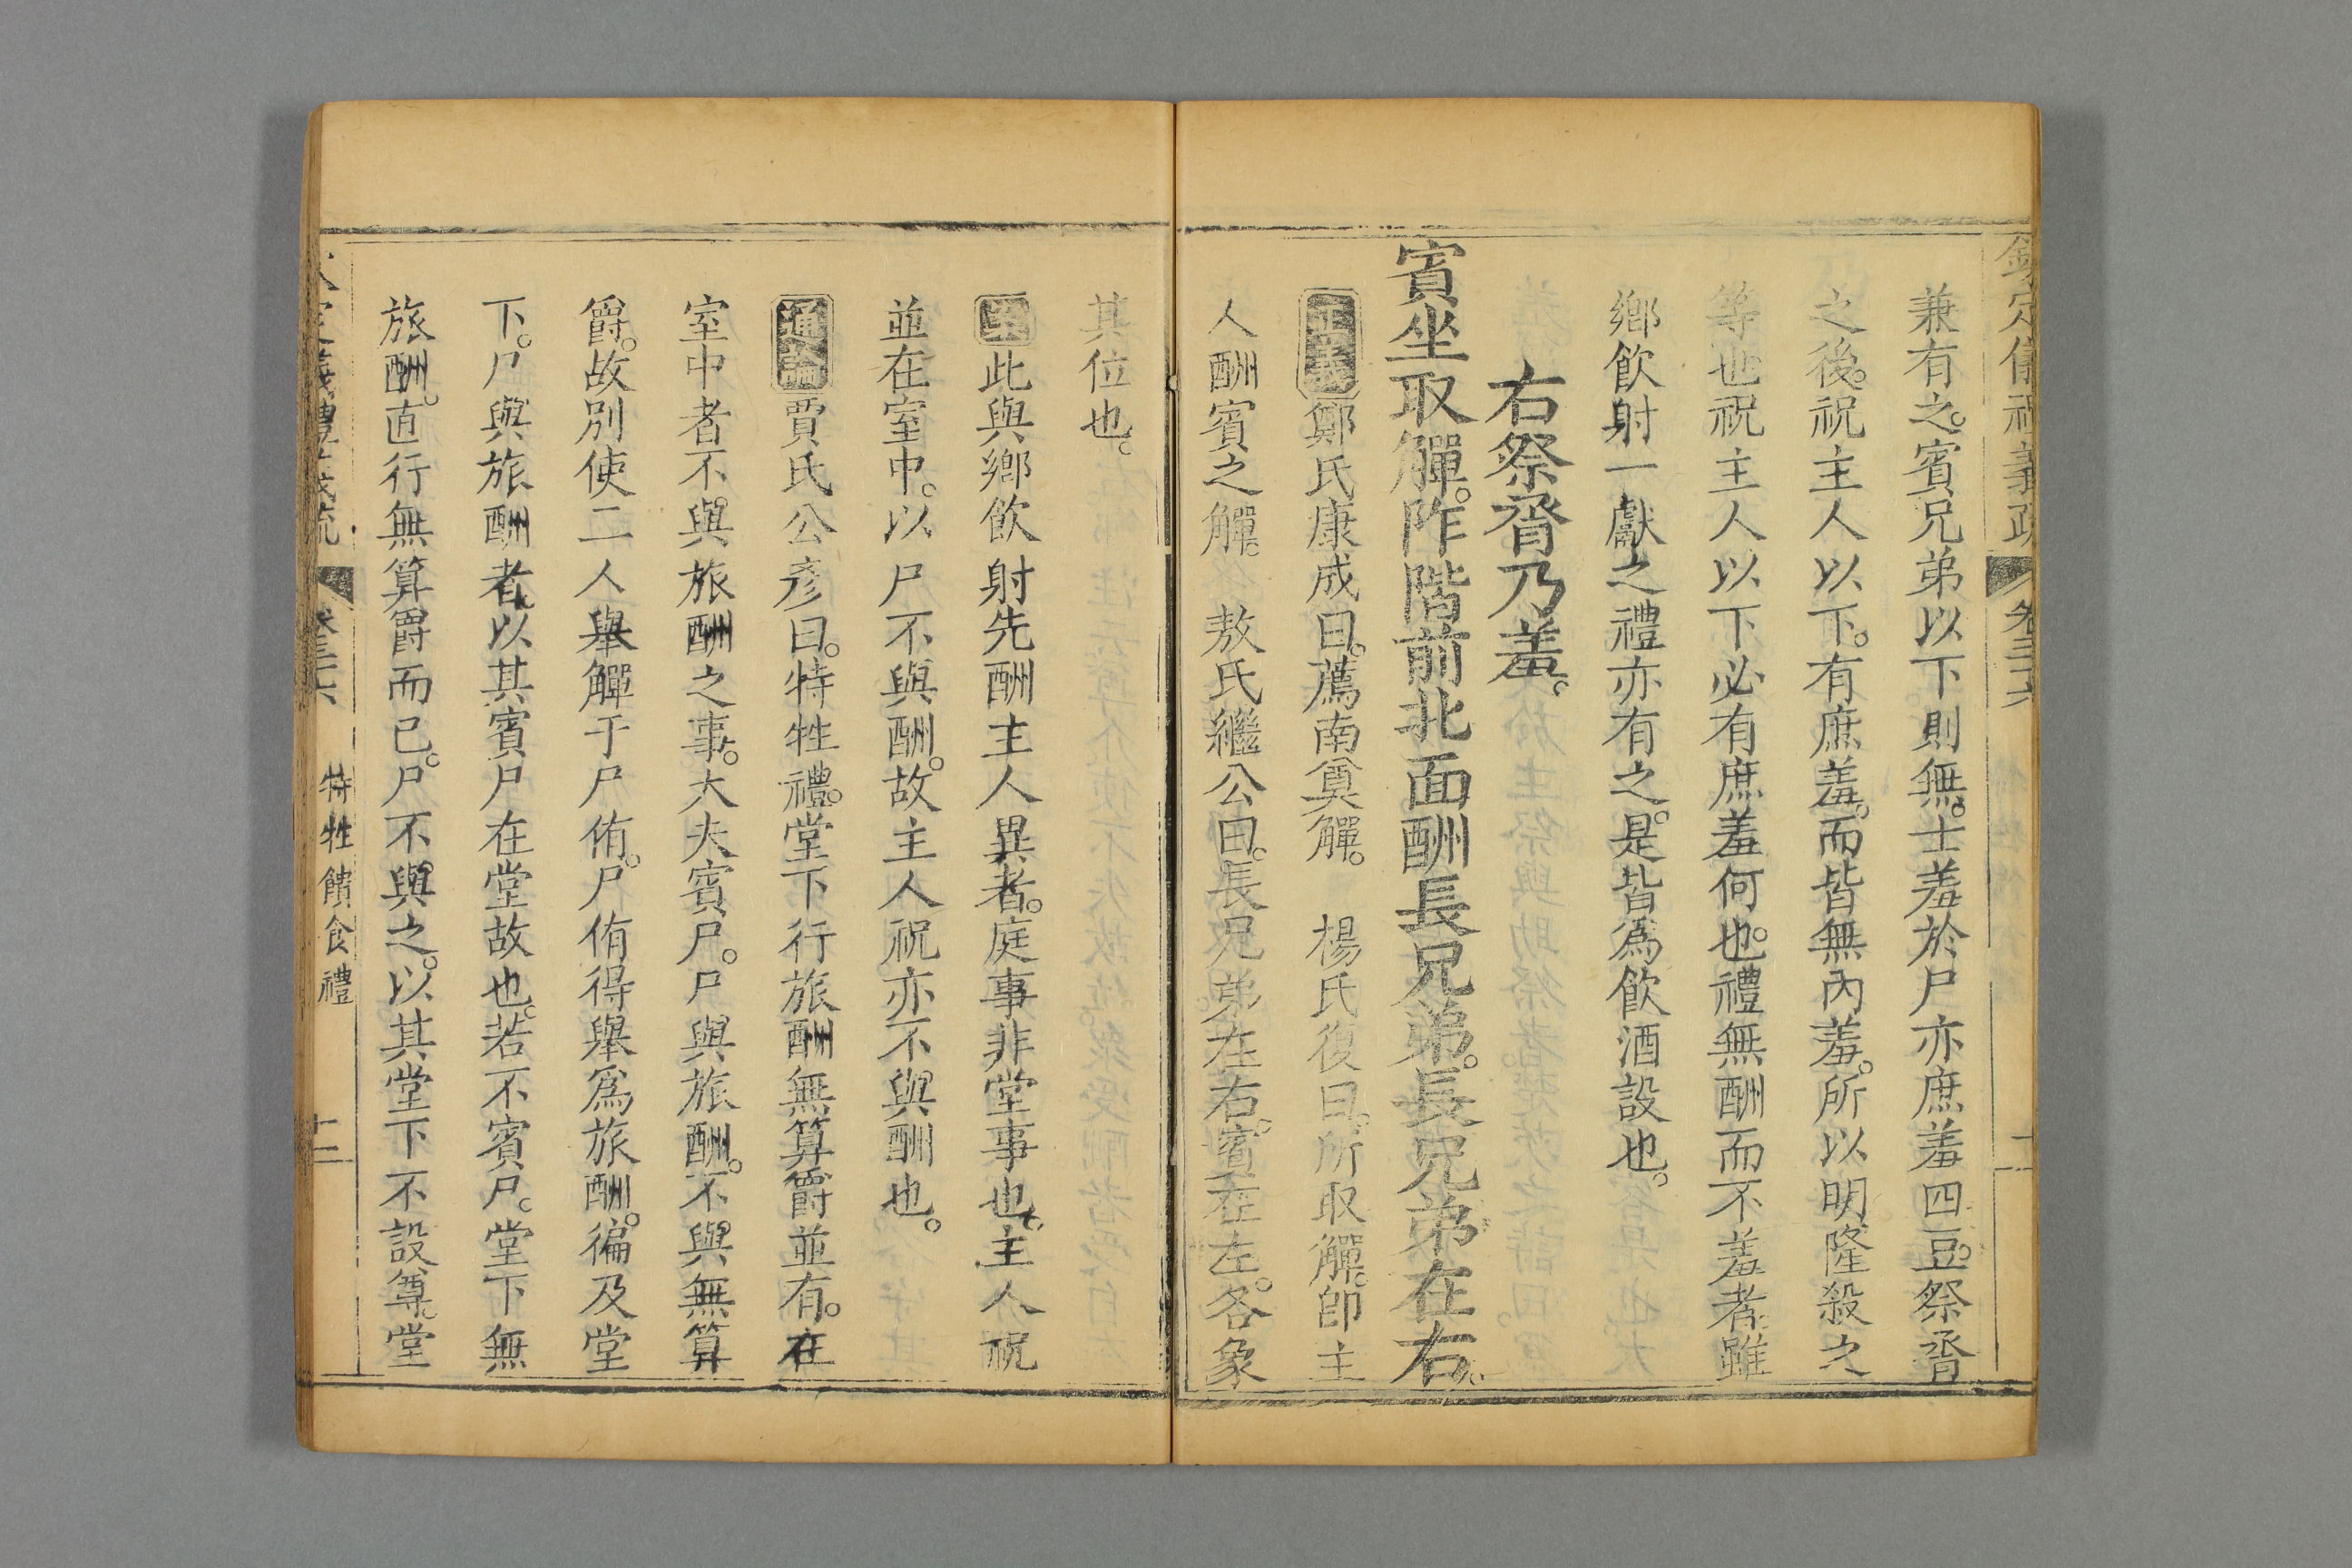 欽定儀禮義疏 卷三十六
兼有之。賓兄弟以下則無。士羞於尸亦庶羞四豆。祭胥
之後。祝主人以下。有庶羞。而皆無內羞。所以明隆殺之
等也祝主人以下必有庶羞何也。禮無酬而不羞者。雖
鄉飲射一獻之禮亦有之。是皆爲飲酒設也。
右祭胥乃羞。
賓坐取觶。阼階前北面酬長兄弟。長兄弟在右。
正義 鄭氏康成曰。薦南奠觶。 楊氏復曰。所取觶。卽主
人酬賓之觶。 敖氏繼公曰。長兄弟在右。賓在左。各象
其位也。
案 此與鄉飲射先酬主人異者。庭事非堂事也。主人祝
並在室中。以尸不與酬。故主人祝亦不與酬也。
通論 賈氏公彥曰。特牲禮。堂下行旅酬無算爵並有。在
室中者不與旅酬之事。大夫賓尸。尸與旅酬。不與無算
爵。故別使二人舉觶于尸侑。尸侑得舉爲旅酬。徧及堂
下。尸與旅酬者。以其賓尸在堂故也。若不賓尸。堂下無
旅酬。直行無算爵而已。尸不與之。以其堂下不設尊。堂
欽定儀禮義疏 卷三十六 特牲饋食禮 十二